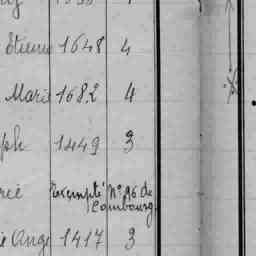 Etienne 1648 4
Marie 1682 4
ph 1449 3
rie Exempté N° 96 de
Combourg.
ie Ange 1417 3